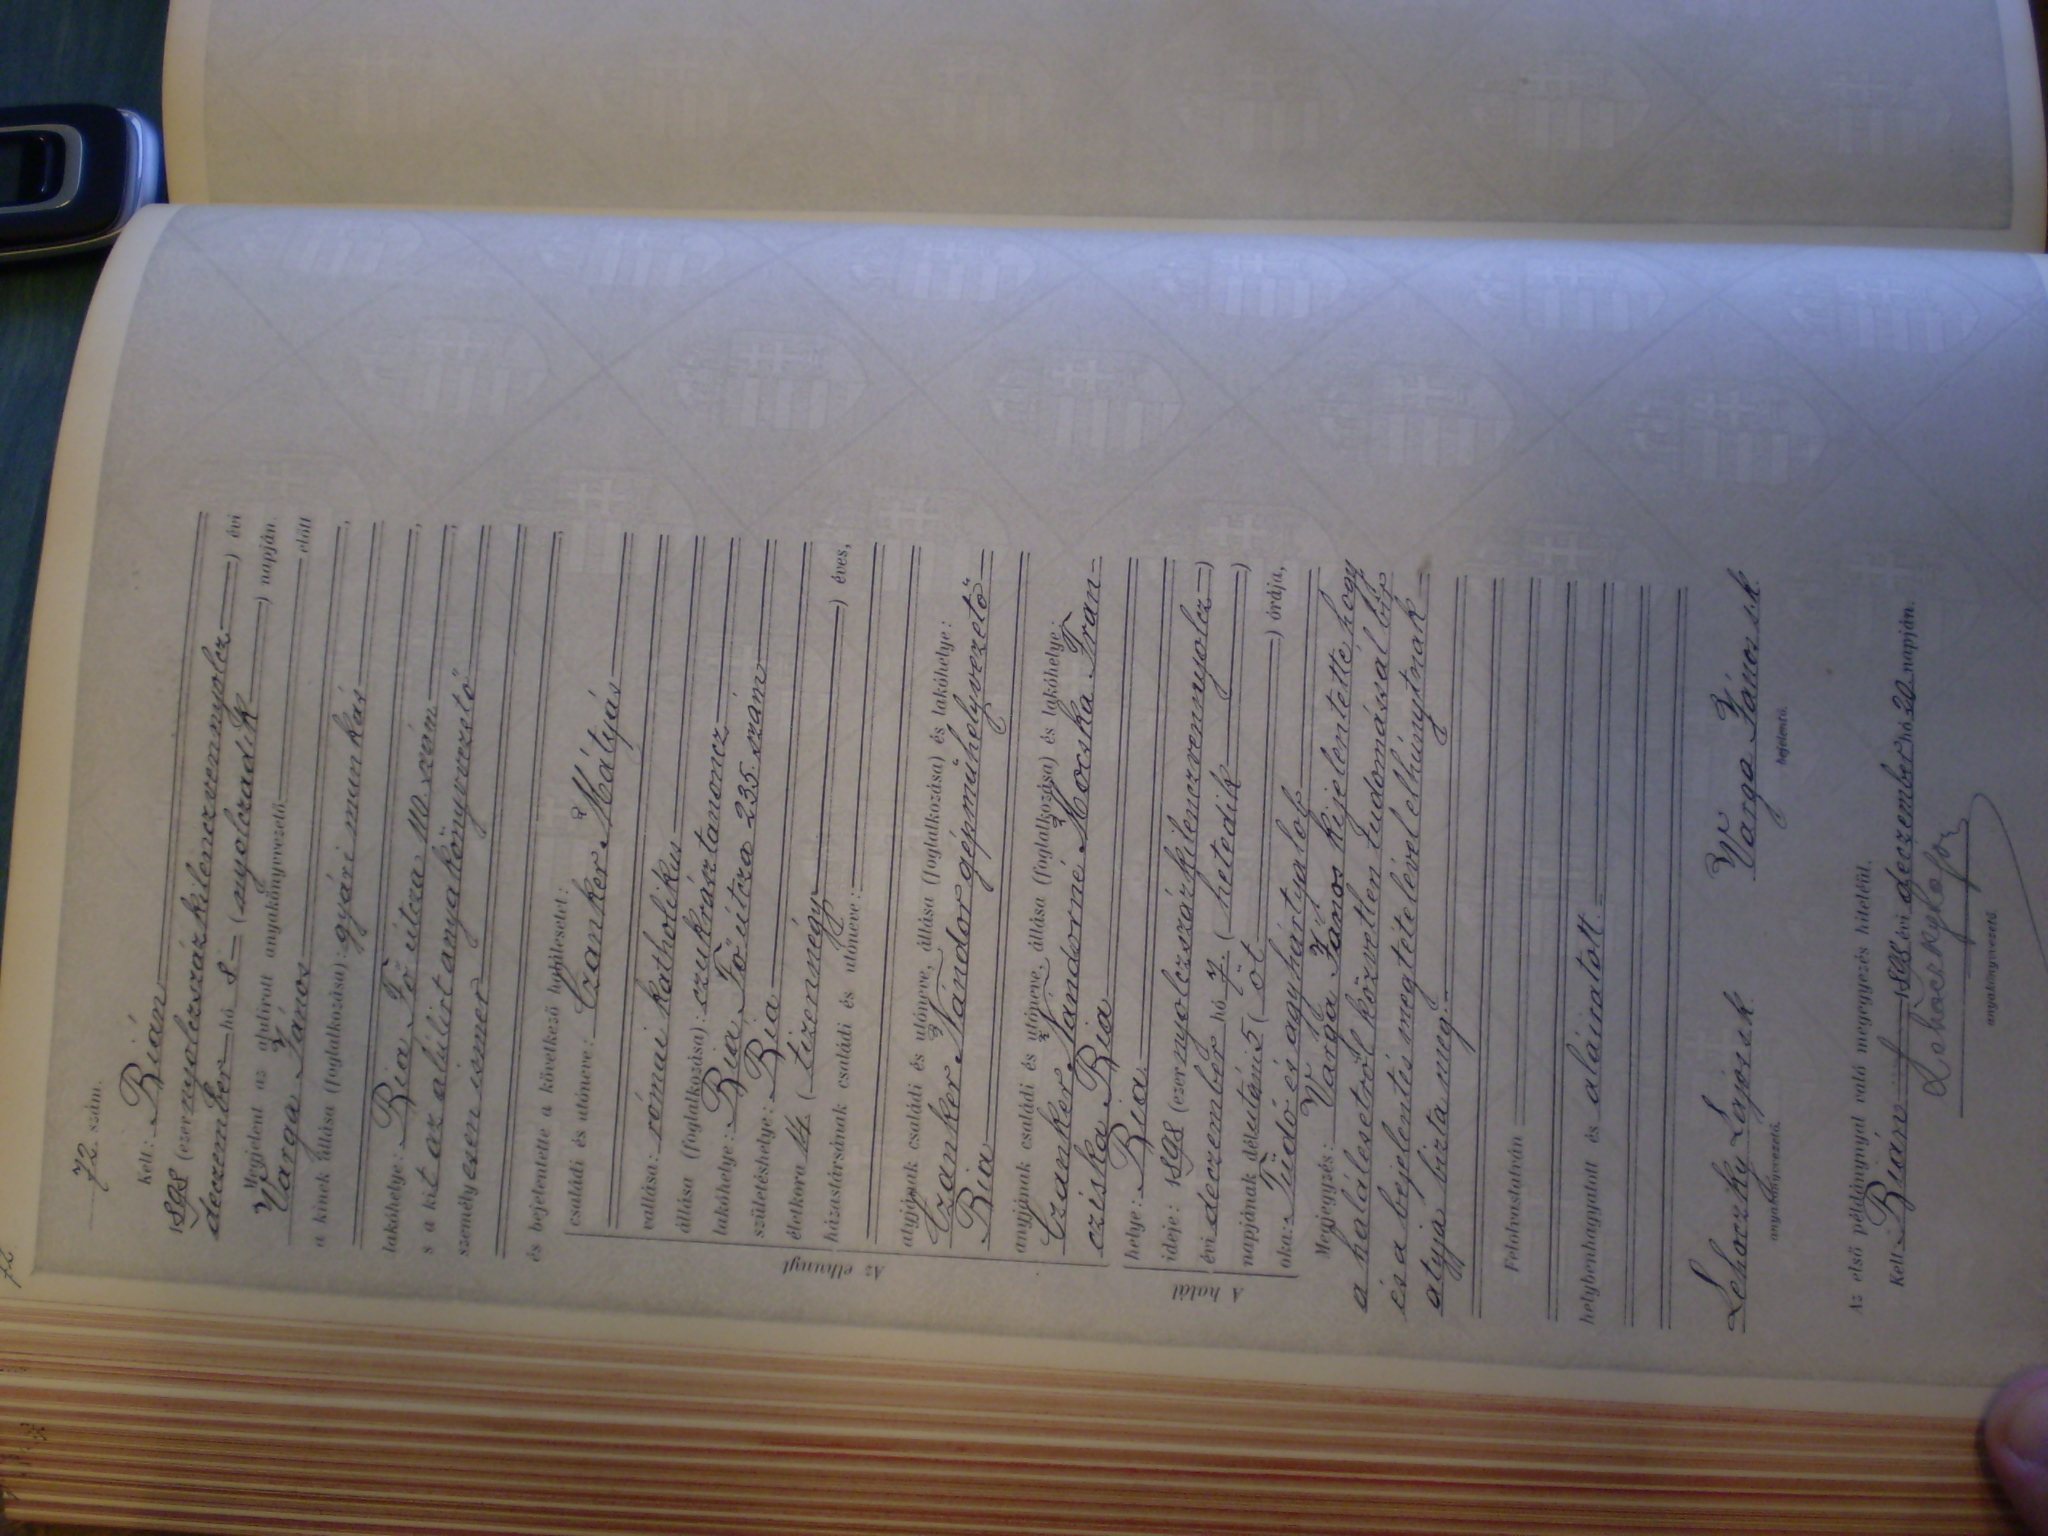 72. szám.
Kelt: Bián
1898 (ezernyolczszázkilenczvennyolcz) évi
deczember hó 8 (nyolczadik) napján.
Megjelent az alulírott anyakönyvvezető előtt
Varga János
a kinek állása (foglalkozása): gyári munkás,
lakóhelye: Bia Fő útca 10 szám,
s a kit az alúlírt anyakönyvvezető,
személyesen ismer
és bejelentette a következő halálesetet:
Az elhunyt
családi és utóneve: Czanker Mátyás,
vallása: római katholikus
állása (foglalkozása): czukrásztanoncz
lakóhelye: Bia Fő útcza 235. szám
születéshelye: Bia
életkora 14 (tizennégy) éves,
házastársának családi és utóneve:
atyjának családi és utóneve, állása (foglalkozása) és lakóhelye:
Czanker Nándor gépműhelyvezető
Bia
anyjának családi és utóneve, állása (foglalkozása) és lakóhelye:
Czanker Nándorné Mocska Fran-
cziska Bia
A halál
helye: Bia
ideje: 1898 (ezernyolczszázkilenczvennyolcz)
évi deczember hó 7. (hetedik)
napjának délutáni 5 (öt) órája,
oka: Tüdő és agyhártyalob
Megjegyzés: Varga János kijelentette hogy
a halálesetről közvetlen tudomással bír
és a bejelentés megtételével elhúnytnak
atyja bízta meg.
Felolvastatván
helybenhagyatott és aláiratott.
Lehoczky Lajos s.k. Varga János s.k.
anyakönyvvezető. bejelentő.
Az első példánynyal való megegyezés hiteléül.
Kelt: Bián 1898 évi deczember hó 20 napján.
anyakönyvvezető.